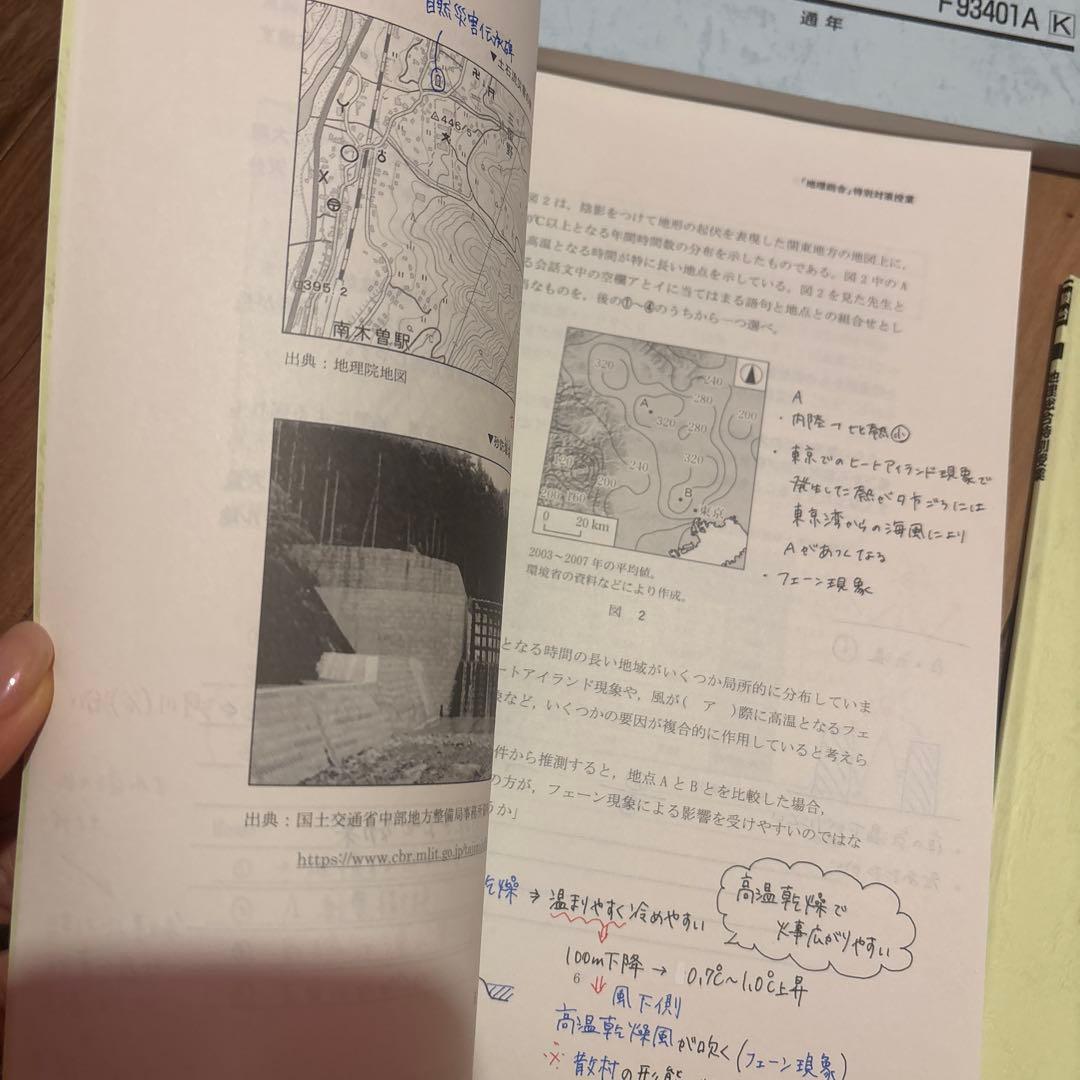 通年
F93401A K
自然災害伝承碑
▼土石流
△446.5
395
2
南木曽駅
出典：地理院地図
出典：国土交通省中部地方整備局
https://www.cbr.mlit.go.jp/
「地理総合」特別対策授業
図2は，陰影をつけて地形の起伏を表現した関東地方の地図上に，
℃以上となる年間時間数の分布を示したものである。図2中のA
高温となる時間が特に長い地点を示している。図2を見た先生と
る会話文中の空欄アとイに当てはまる語句と地点との組合せとし
当なものを，後の①～④のうちから一つ選べ。
320
240
280
200
A
320
280
320
120
240
200
B
200 160
東京
0 20 km
2003～2007年の平均値。
環境省の資料などにより作成。
図 2
A
・内陸→比熱小
・東京でのヒートアイランド現象で
発生した熱が夕方ごろには
東京湾からの海風により
Aがあつくなる
・フェーン現象
となる時間の長い地域がいくつか局所的に分布していま
ートアイランド現象や，風が( ア )際に高温となるフェ
象など，いくつかの要因が複合的に作用していると考えら
件から推測すると，地点AとBとを比較した場合，
の方が，フェーン現象による影響を受けやすいのではな
うか」
乾燥 ⇒ 温まりやすく冷めやすい
高温乾燥で
火事広がりやすい
100m下降 → 0.7℃～1.0℃上昇
6
風下側
高温乾燥風が吹く(フェーン現象)
※ 散村の形態